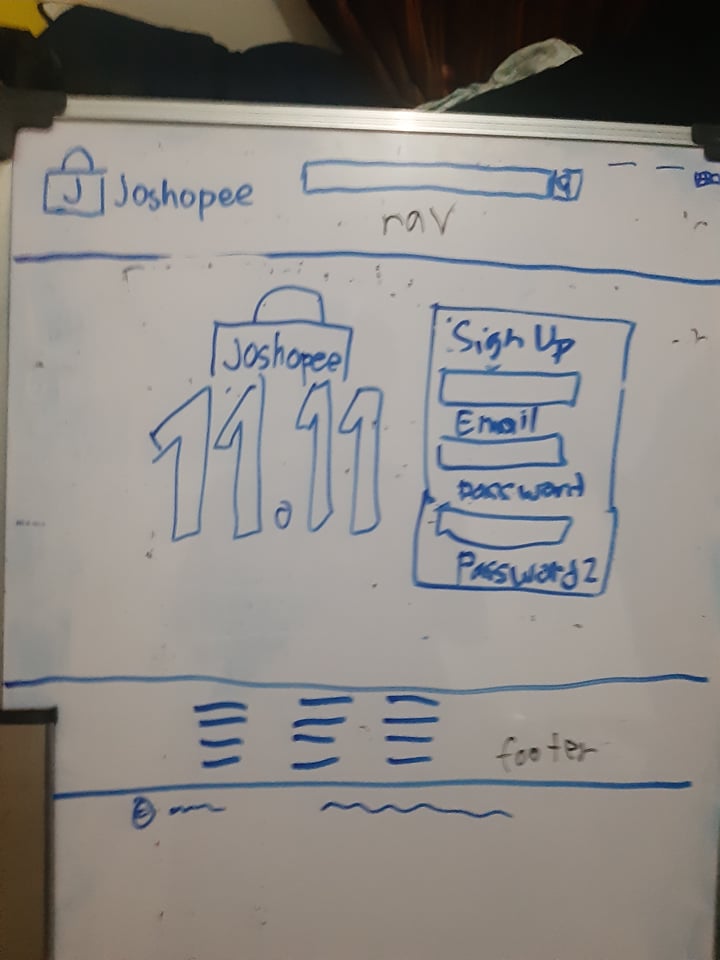 J Joshopee
nav
Joshopee
11.11
Sign Up
Email
Password
Password2
footer